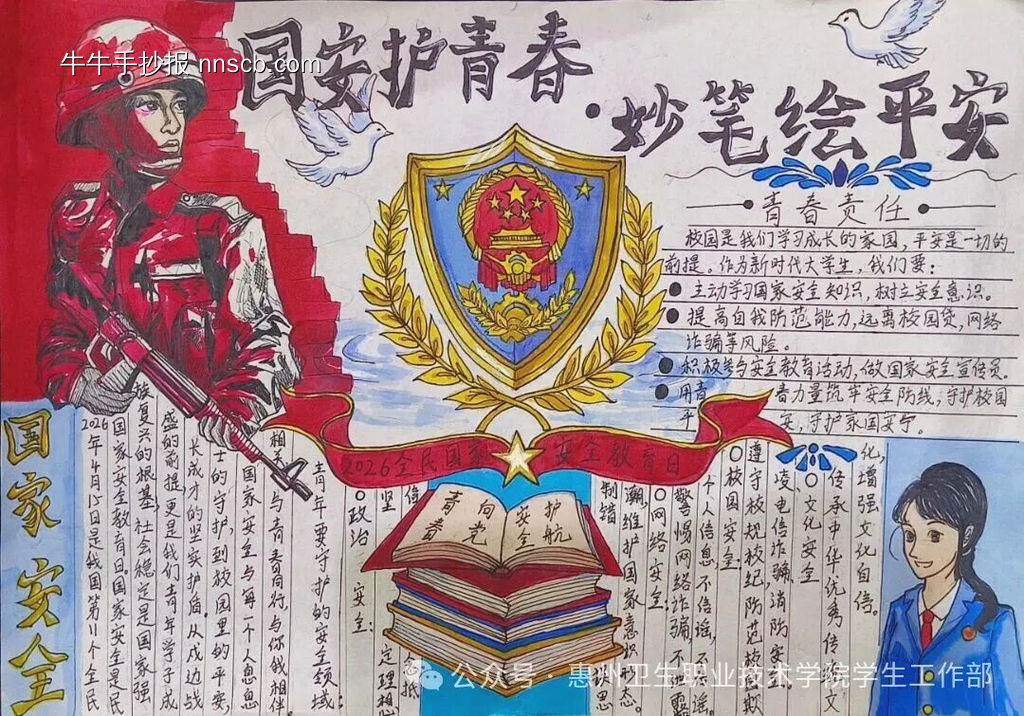 牛牛手抄报 nnscb.com
国安护青春·妙笔绘平安
青春责任
校园是我们学习成长的家园，平安是一切的
前提。作为新时代大学生，我们要：
●主动学习国家安全知识，树立安全意识。
●提高自我防范能力，远离校园贷，网络
诈骗等风险。
●积极参与安全教育活动，做国家安全宣传员。
●用青春力量筑牢安全防线，守护校园
平安，守护家国安宁。
2026全民国家安全教育日
青春向党
安全护航
国家安全
2026年4月15日是我国第11个全民
国家安全教育日国家安全是民
族复兴的根基，社会稳定是国家强
盛的前提更是我们青年学子成
长成才的坚实护盾。从戍边战
士的守护，到校园里的平安，
国家安全与每一个人息息
相关，与青春同行，与你我相伴
青年要守护的安全领域：
○政治安全：
坚定理想
信抵
制错思
潮，维护国家意识形态。
○网络安全：
警惕网络诈骗不泄露
个人信息不信谣，不传谣。
○校园安全：
遵守校规校纪防范校园欺
凌电信诈骗，消防安
○文化安全
传承中华优秀传统文
化，增强文化自信。
公众号·惠州卫生职业技术学院学生工作部